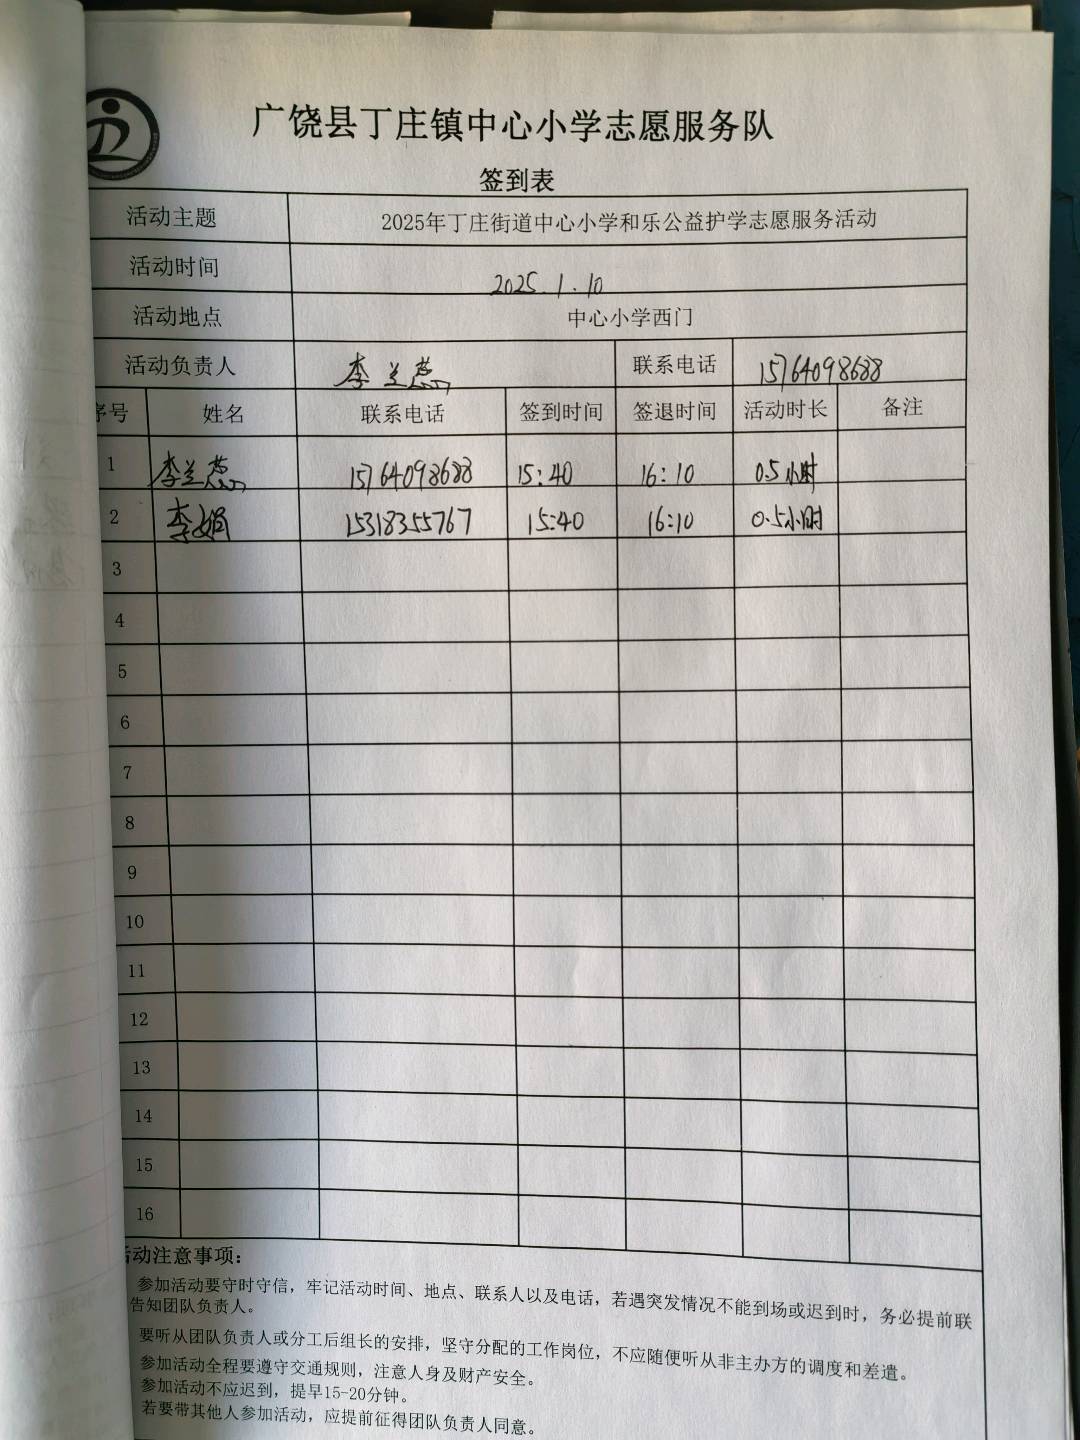 广饶县丁庄镇中心小学志愿服务队
签到表
活动主题 2025年丁庄街道中心小学和乐公益护学志愿服务活动
活动时间 2025.1.10
活动地点 中心小学西门
活动负责人 李兰蕊 联系电话 15764098688
序号 姓名 联系电话 签到时间 签退时间 活动时长 备注
1 李兰蕊 15764098688 15:40 16:10 0.5小时
2 李娟 15318355767 15:40 16:10 0.5小时
3
4
5
6
7
8
9
10
11
12
13
14
15
16
活动注意事项：
参加活动要守时守信，牢记活动时间、地点、联系人以及电话，若遇突发情况不能到场或迟到时，务必提前联
告知团队负责人。
要听从团队负责人或分工后组长的安排，坚守分配的工作岗位，不应随便听从非主办方的调度和差遣。
参加活动全程要遵守交通规则，注意人身及财产安全。
参加活动不应迟到，提早15-20分钟。
若要带其他人参加活动，应提前征得团队负责人同意。